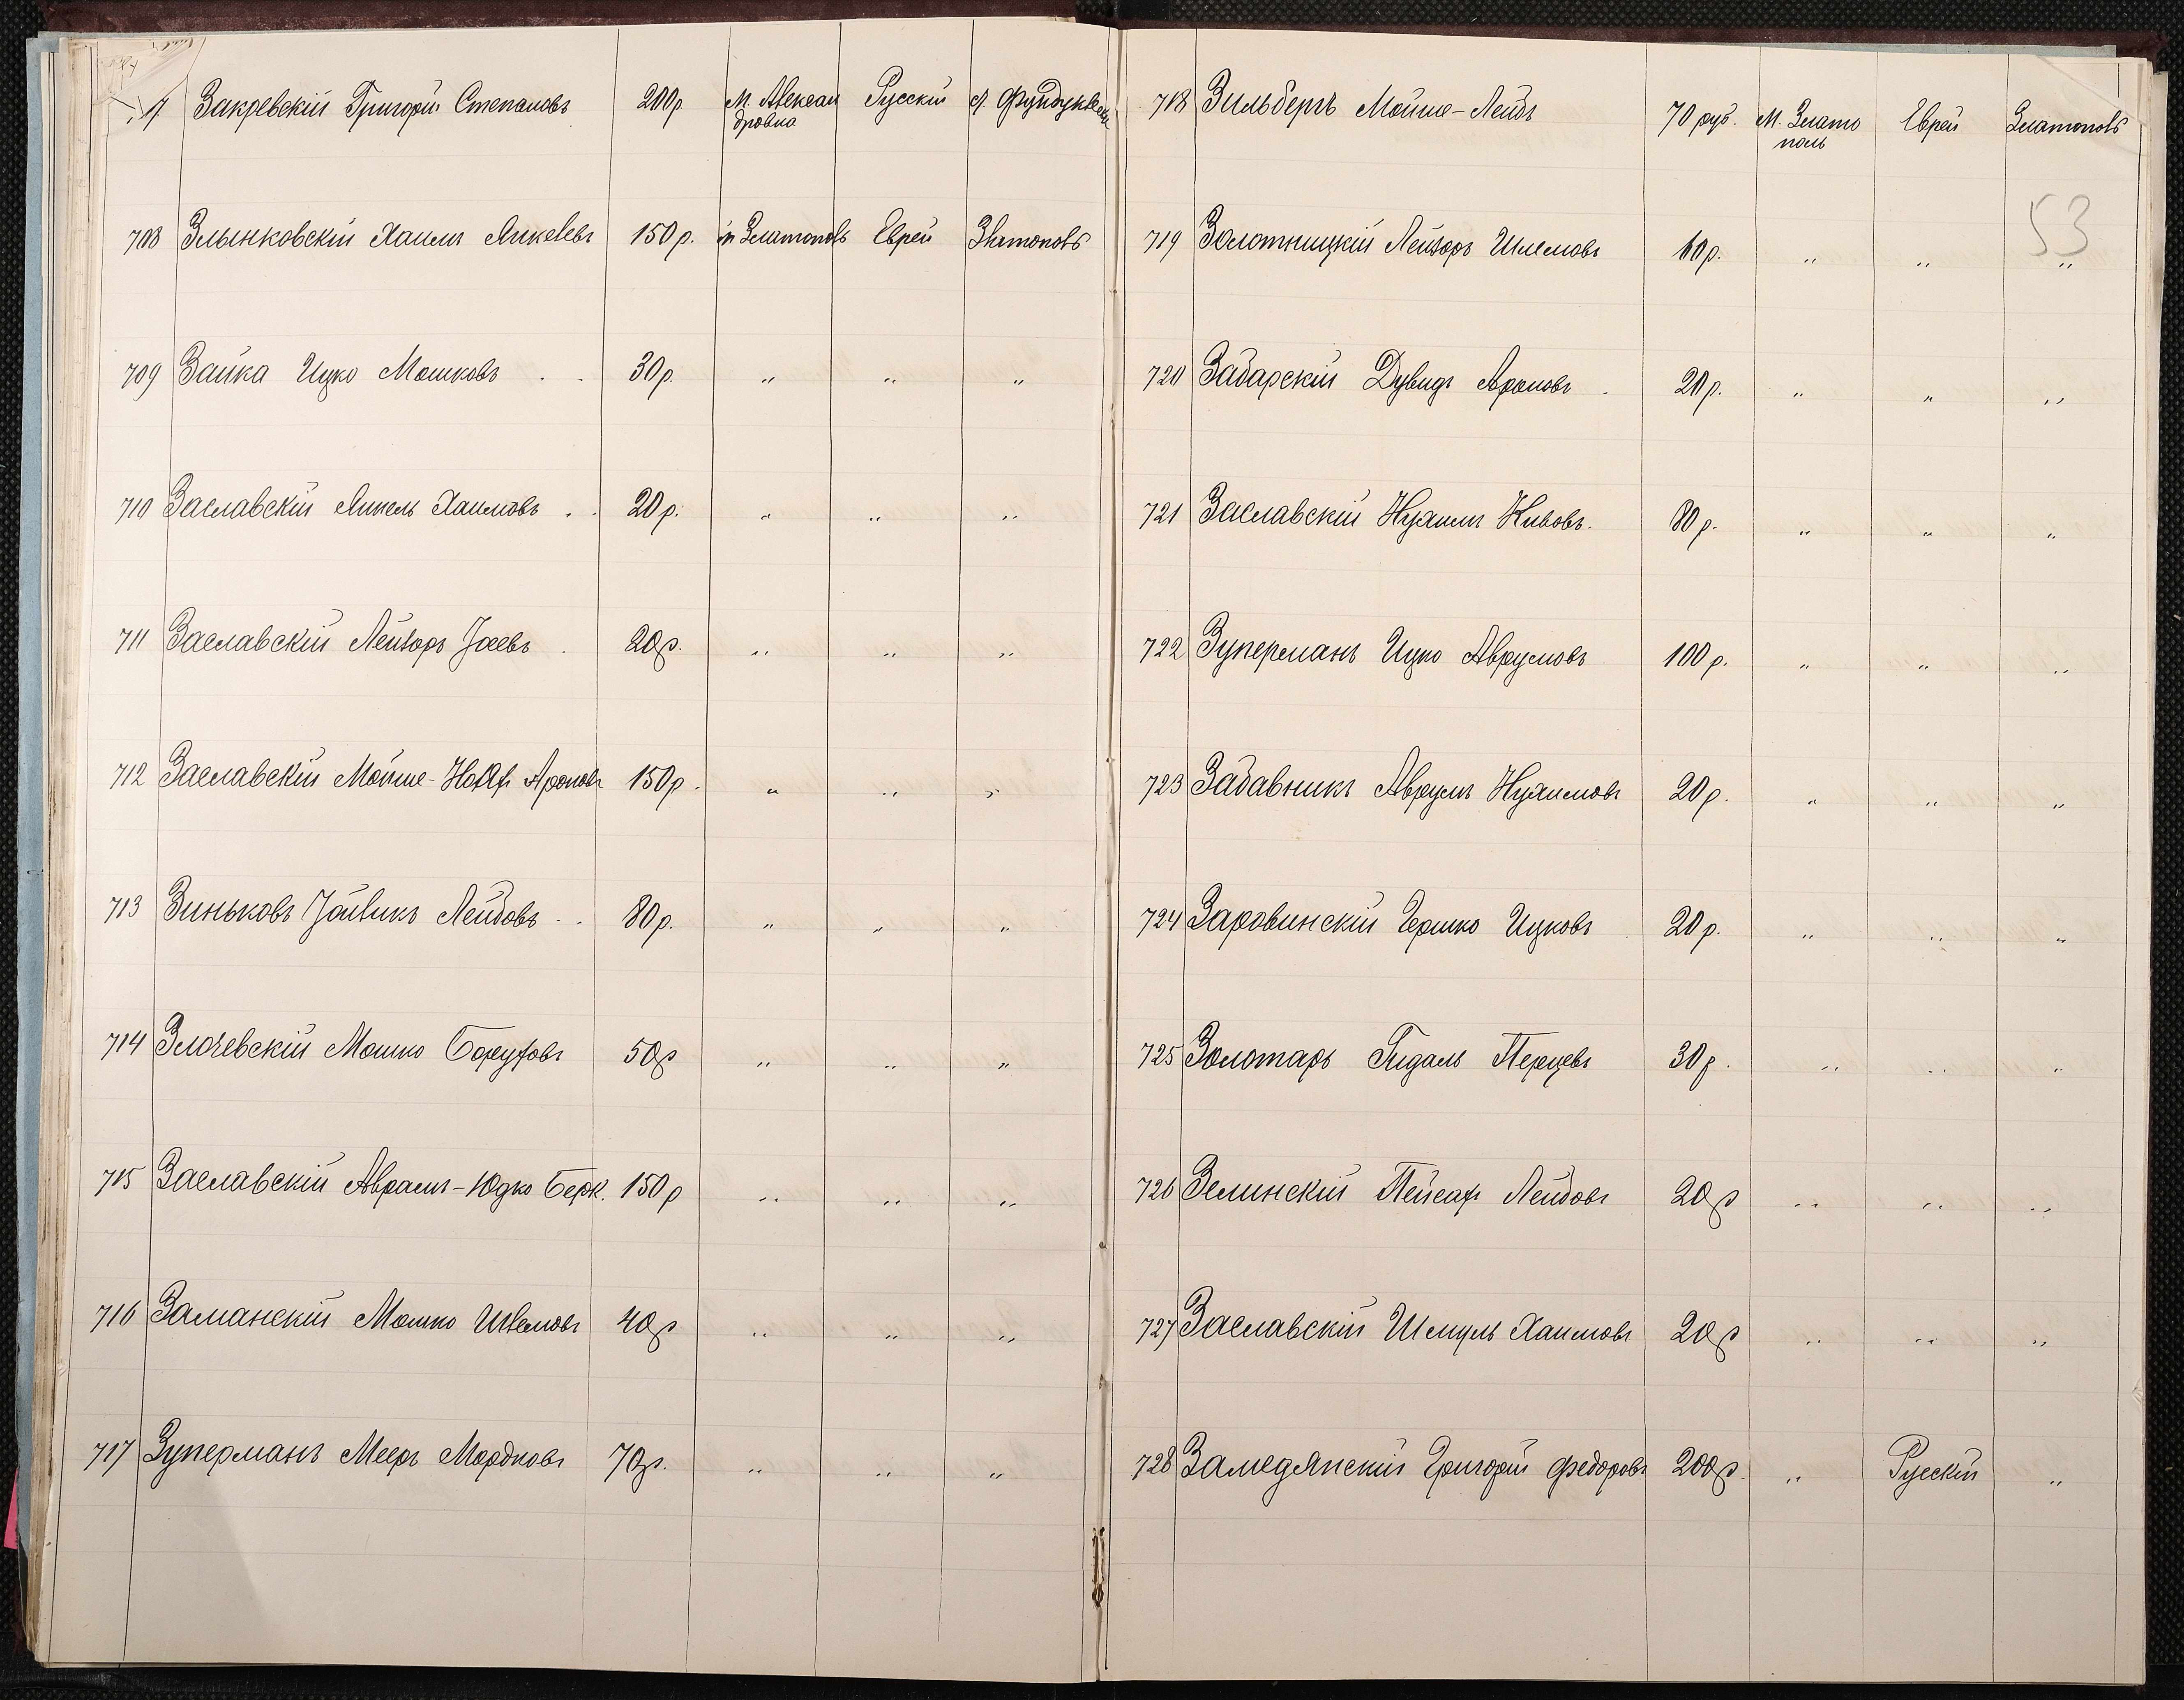 7 Закревскій Григорій Степановъ 200р. М. Александровка Русскій
708 Злынковскій Хаимъ Янкелевъ 150 р. м Златополь Еврей Златополь
709 Зайка Ицко Мошковъ 30р. " " "
710 Заславскій Янкель Хаимовъ 20р. " " "
711 Заславскій Лейзоръ Іоевъ 20р. " " "
712 Заславскій Мойше-Ноях Ароновъ 150р. " " "
713 Зиньковъ Зайвикъ Лейбовъ 80р. " " "
714 Злочевскій Мошко Боруховъ 50р " " "
715 Заславскій Аврамъ-Юдко Берк. 150р " " "
716 Заманскій Мошко Шлемовъ 40р " " "
717 Зуперманъ Мееръ Мордковъ 70р. " " "
718 Зильбергъ Мойше-Лейбъ 70 руб. М. Златополь Еврей Златополь
53
719 Золотницкій Лейзоръ Шлемовъ 60р. " " "
720 Забарскій Дувидъ Ароновъ 20р. " " "
721 Заславскій Нухимъ Кивовъ. 80р. " " "
722 Зуперманъ Ицко Аврумовъ 100р. " " "
723 Забавникъ Аврумъ Нухимовъ 20р. " " "
724 Заровинскій Гершко Ицковъ 20р. " " "
725 Золотарь Гидаль Перцевъ 30р. " " "
726 Зелинскій Пейсах Лейбовъ 20р " " "
727 Заславскій Шмуль Хаимовъ 20р " " "
728 Замедянскій Григорій Федоровъ 200р. " Русскій "